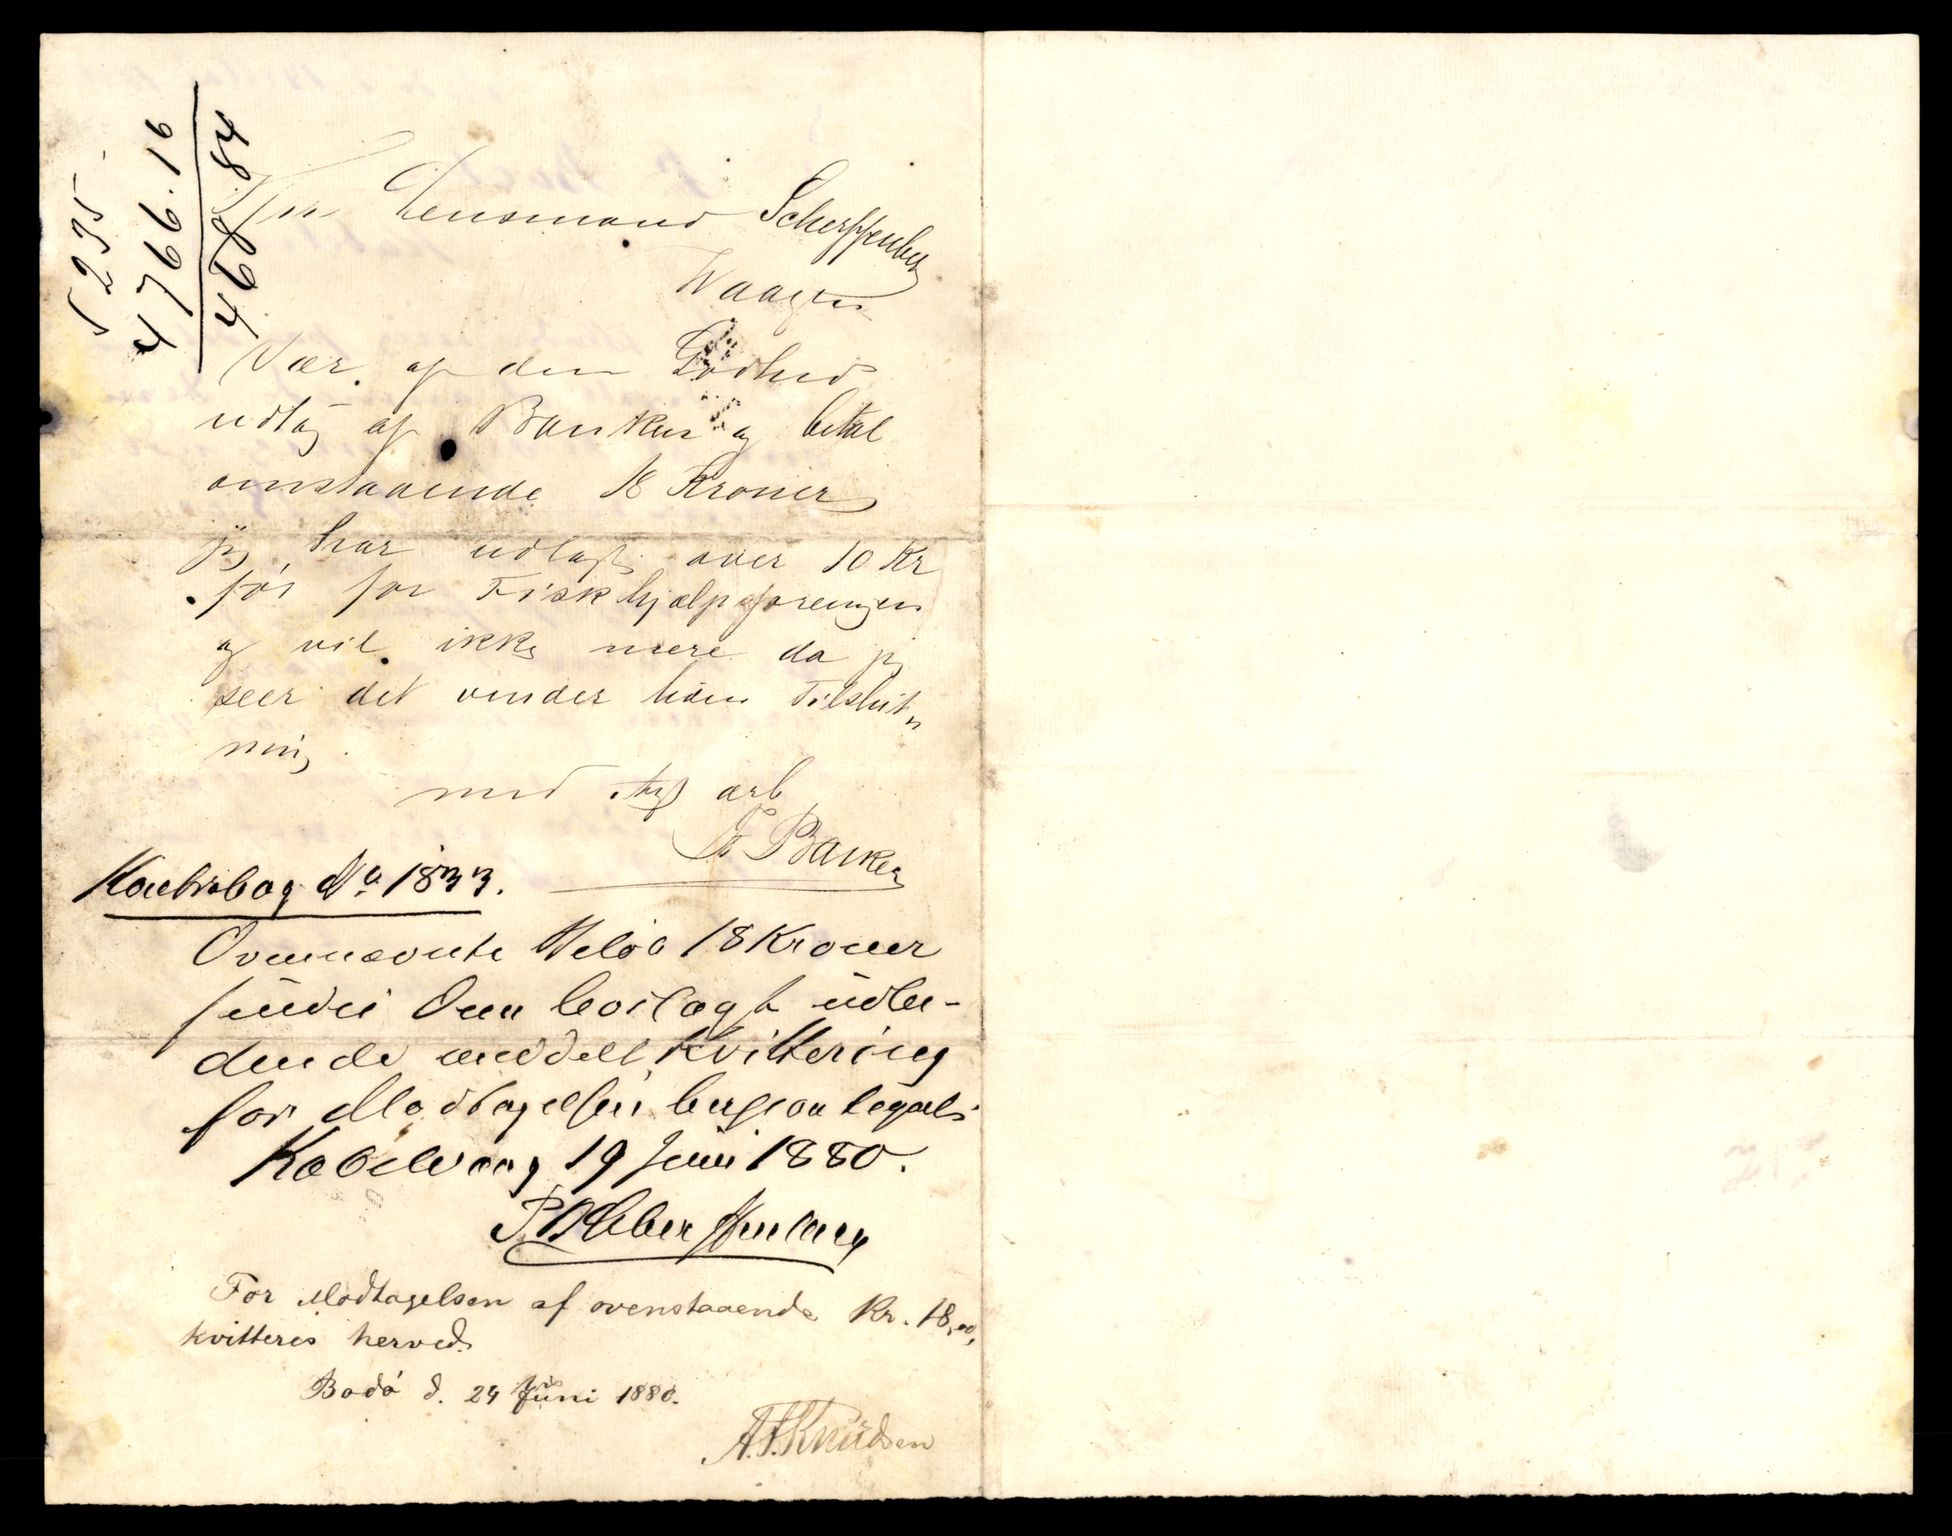 5235
4766.16
468.84
Hr Lensmand Scherffenberg
Waagen
Vær af den Godhed
udtag af Banken og betal
omstaaende 18 Kroner
jeg har udlagt over 10 Kr
før for Fiskhjælpsforeningen
og vil ikke mere da jeg
seer det vinder liden Tilslut„
ning.
med Agt ærb
F Barken
No 1833.
Ovennævnte Beløb 18 Kroner
lagt udbe-
dende meddelt Kvittering
for Modtagelsen
Kabelvaag 19 Juni 1880.
For Modtagelsen af ovenstaaende Kr. 18,00,
kvitteres herved.
Bodø d. 24 Juni 1880.
A. J. Knudsen